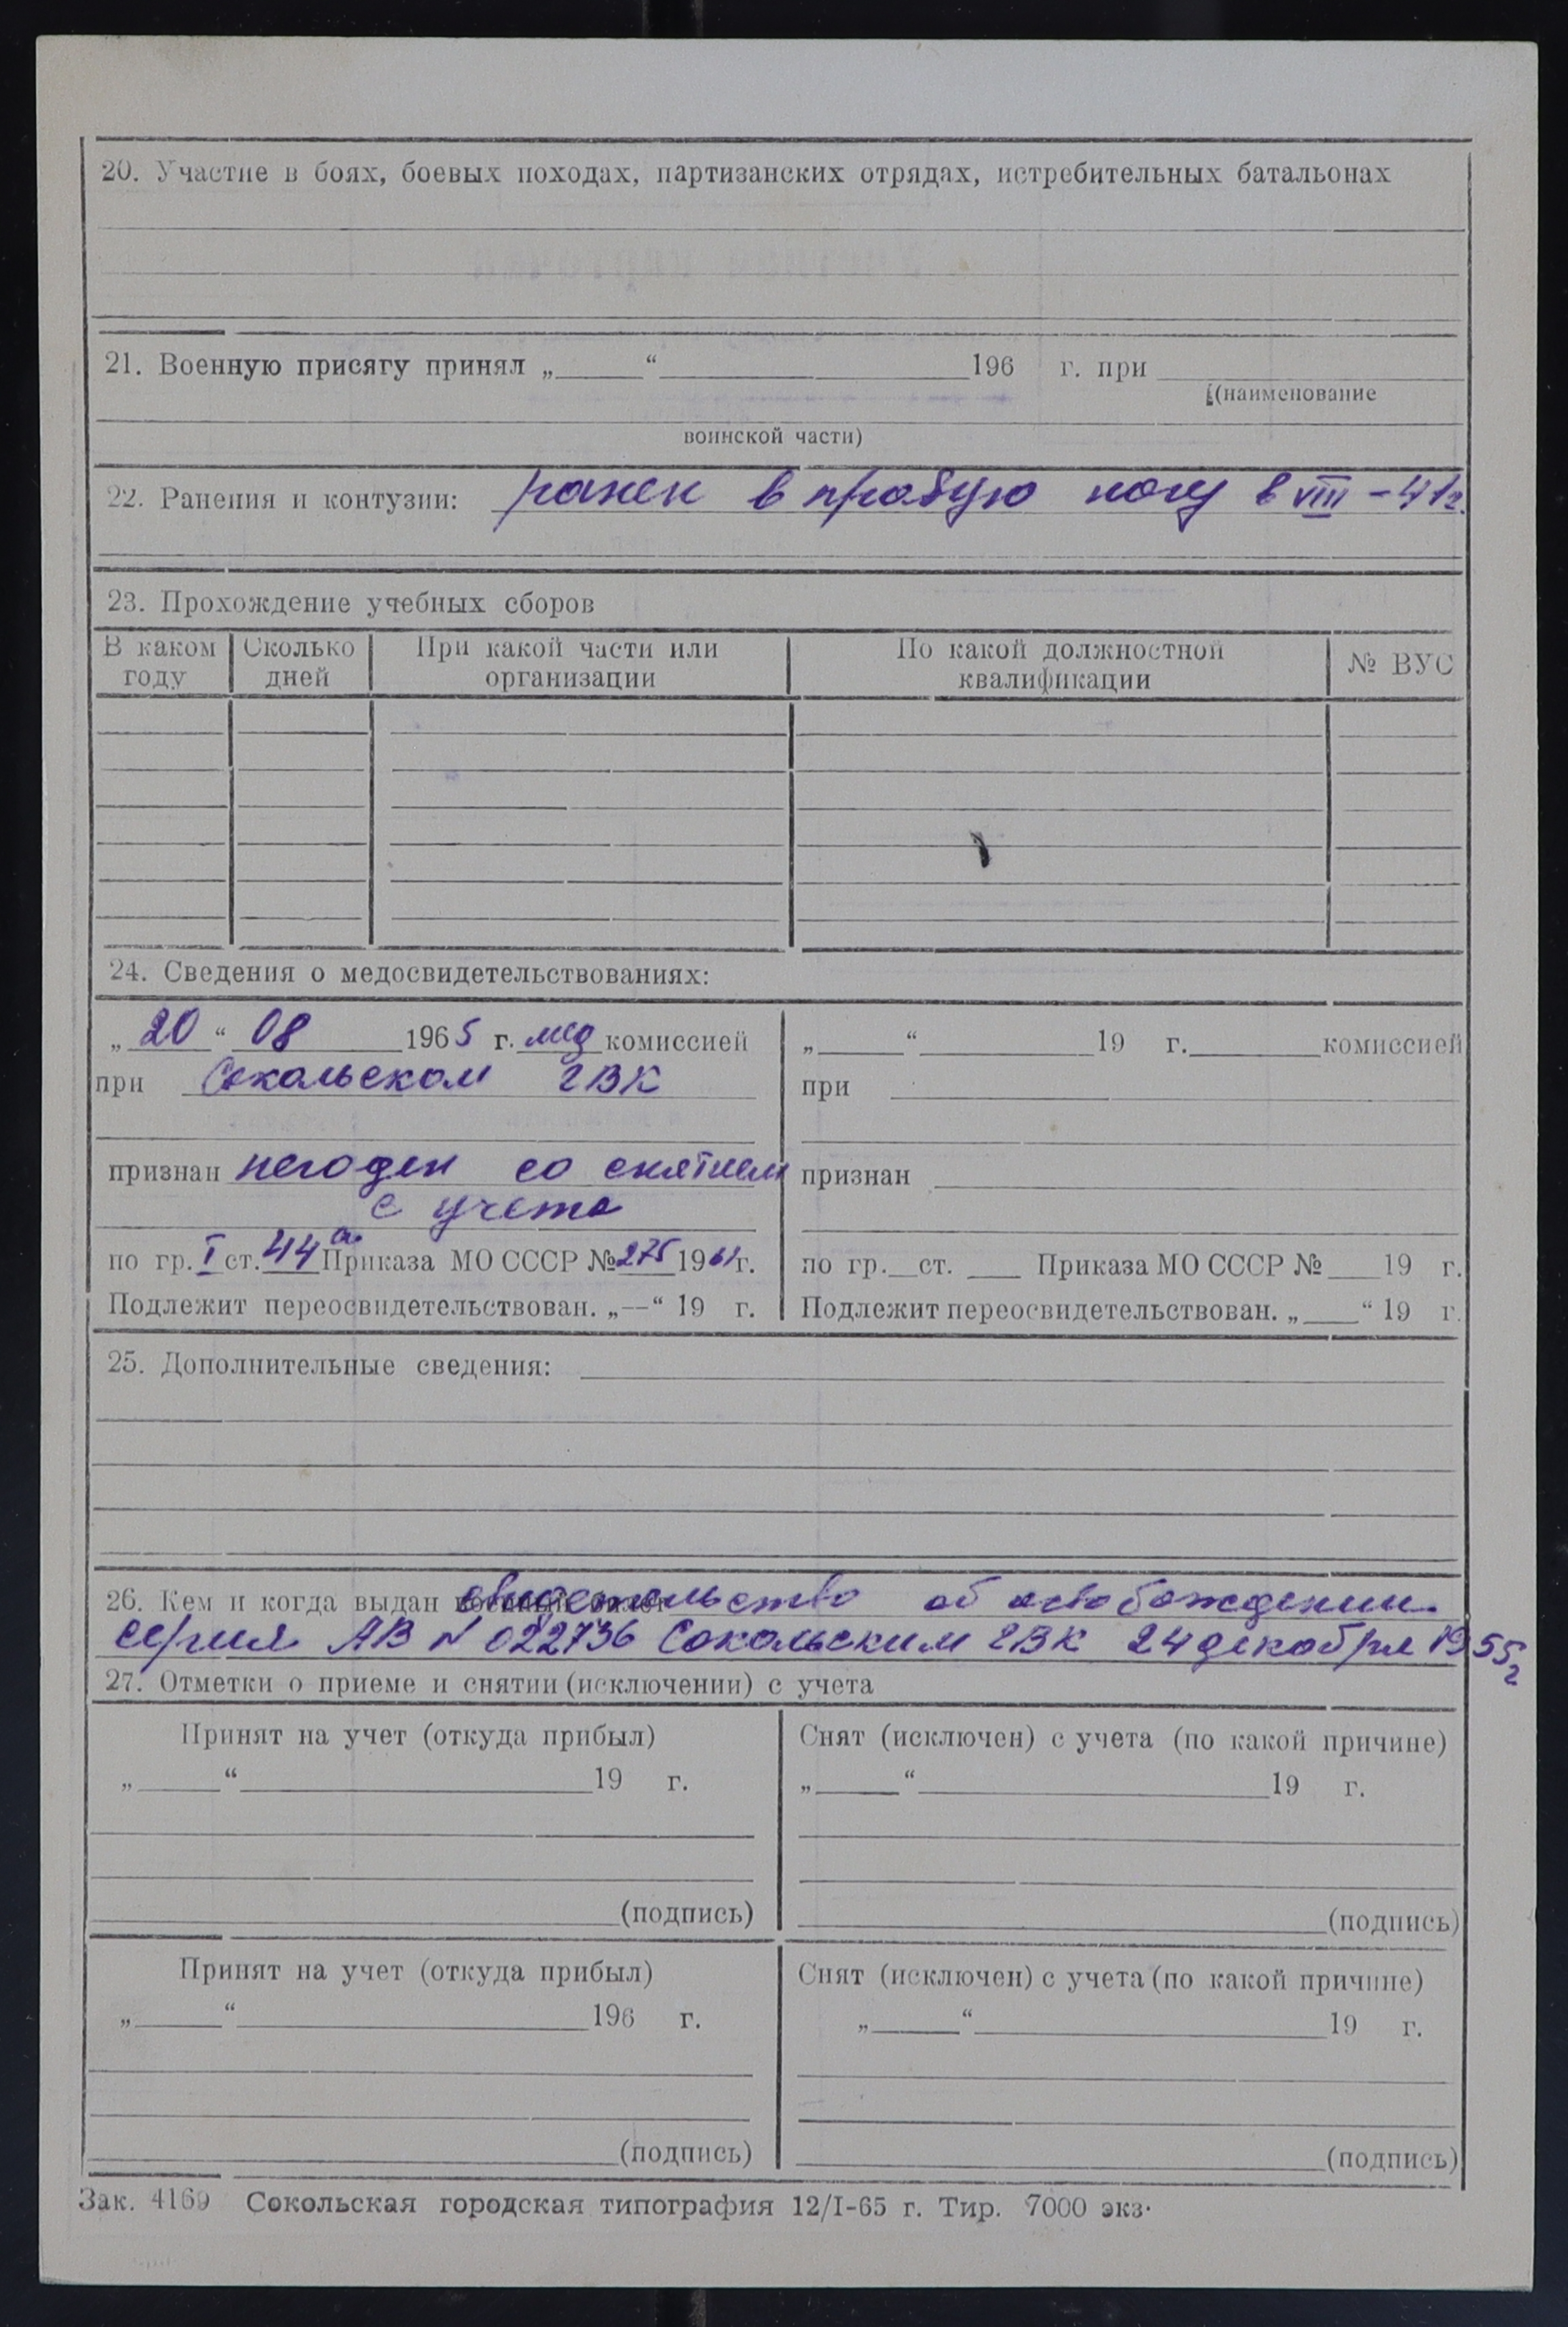 20. Участие в боях, боевых походах, партизанских отрядах, истребительных батальонах
21. Военную присягу принял „ “ 196 г. при
(наименование
воинской части)
22. Ранения и контузии: ранен в правую ногу в VIII – 41 г.
23. Прохождение учебных сборов
В каком году Сколько дней При какой части или организации По какой должностной квалификации № ВУС
24. Сведения о медосвидетельствованиях:
„20“ 08 1965 г. мед комиссией
при Сокольском ГВК
признан негоден со снятием
с учета
по гр. I ст. 44 а Приказа МО СССР № 275 19 г.
Подлежит переосвидетельствован. „—“ 19 г.
„ “ 19 г. комиссией
при
признан
по гр. ст. Приказа МО СССР № 19 г.
Подлежит переосвидетельствован. „ “ 19 г.
25. Дополнительные сведения:
26. Кем и когда выдан военный билет свидетельство об освобождении
серия АВ N 022736 Сокольским ГВК 24 декабря 1955 г
27. Отметки о приеме и снятии (исключении) с учета
Принят на учет (откуда прибыл)
„ “ 19 г.
(подпись)
Снят (исключен) с учета (по какой причине)
„ “ 19 г.
(подпись)
Принят на учет (откуда прибыл)
„ “ 196 г.
(подпись)
Снят (исключен) с учета (по какой причине)
„ “ 19 г.
(подпись)
Зак. 4169 Сокольская городская типография 12/I-65 г. Тир. 7000 экз.